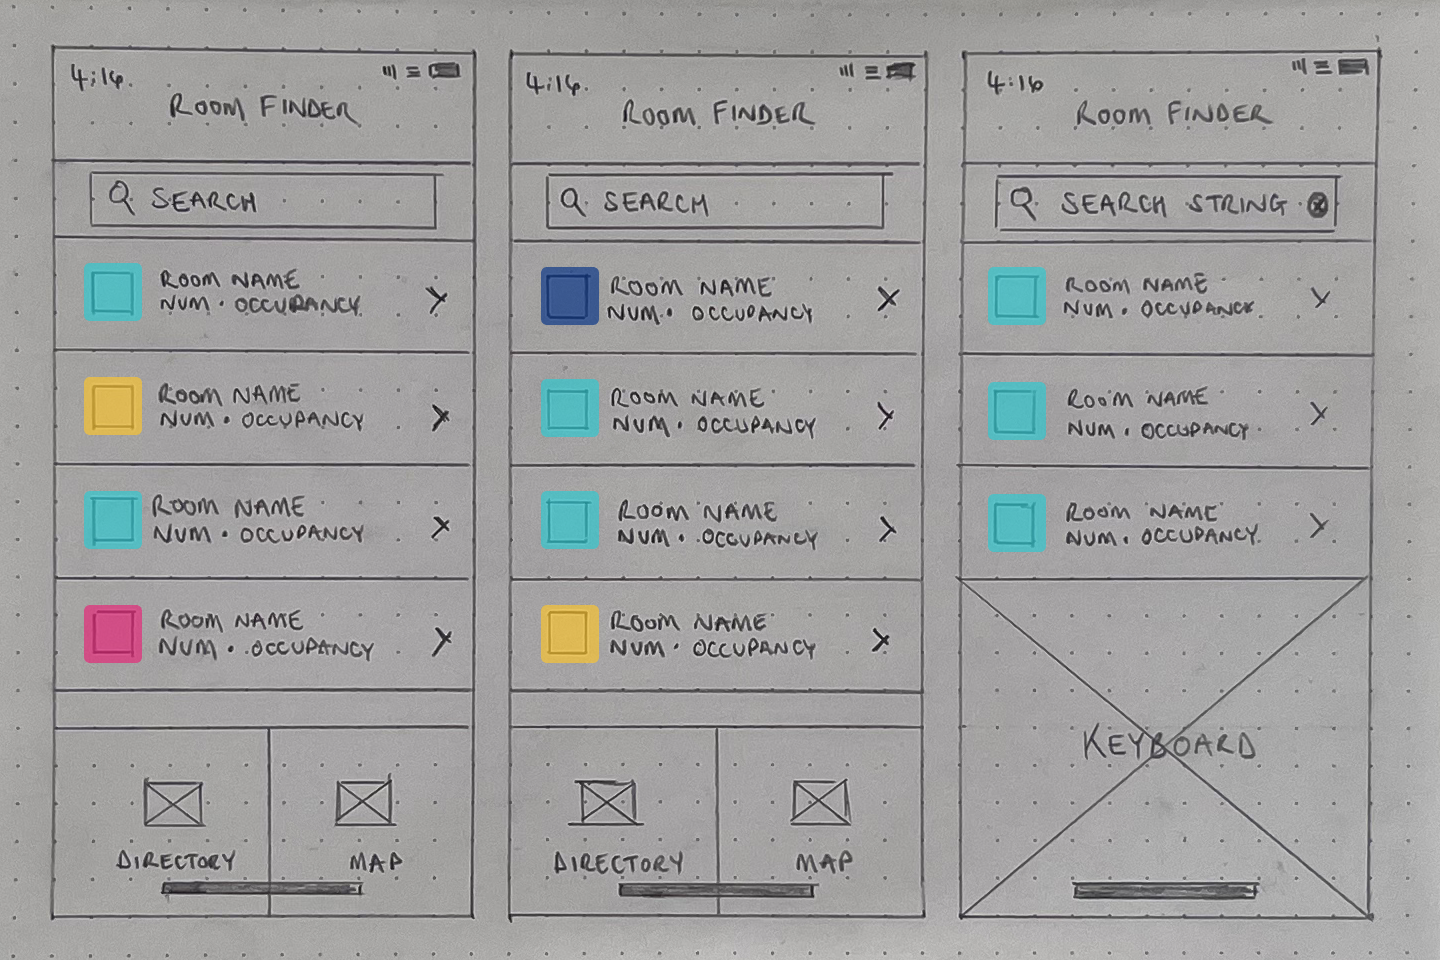 4:16
ROOM FINDER
SEARCH
ROOM NAME
NUM • OCCUPANCY
ROOM NAME
NUM • OCCUPANCY
ROOM NAME
NUM • OCCUPANCY
ROOM NAME
NUM • OCCUPANCY
DIRECTORY
MAP
4:16
ROOM FINDER
SEARCH
ROOM NAME
NUM • OCCUPANCY
ROOM NAME
NUM • OCCUPANCY
ROOM NAME
NUM • OCCUPANCY
ROOM NAME
NUM • OCCUPANCY
DIRECTORY
MAP
4:16
ROOM FINDER
SEARCH STRING
ROOM NAME
NUM • OCCUPANCY
ROOM NAME
NUM • OCCUPANCY
ROOM NAME
NUM • OCCUPANCY
KEYBOARD